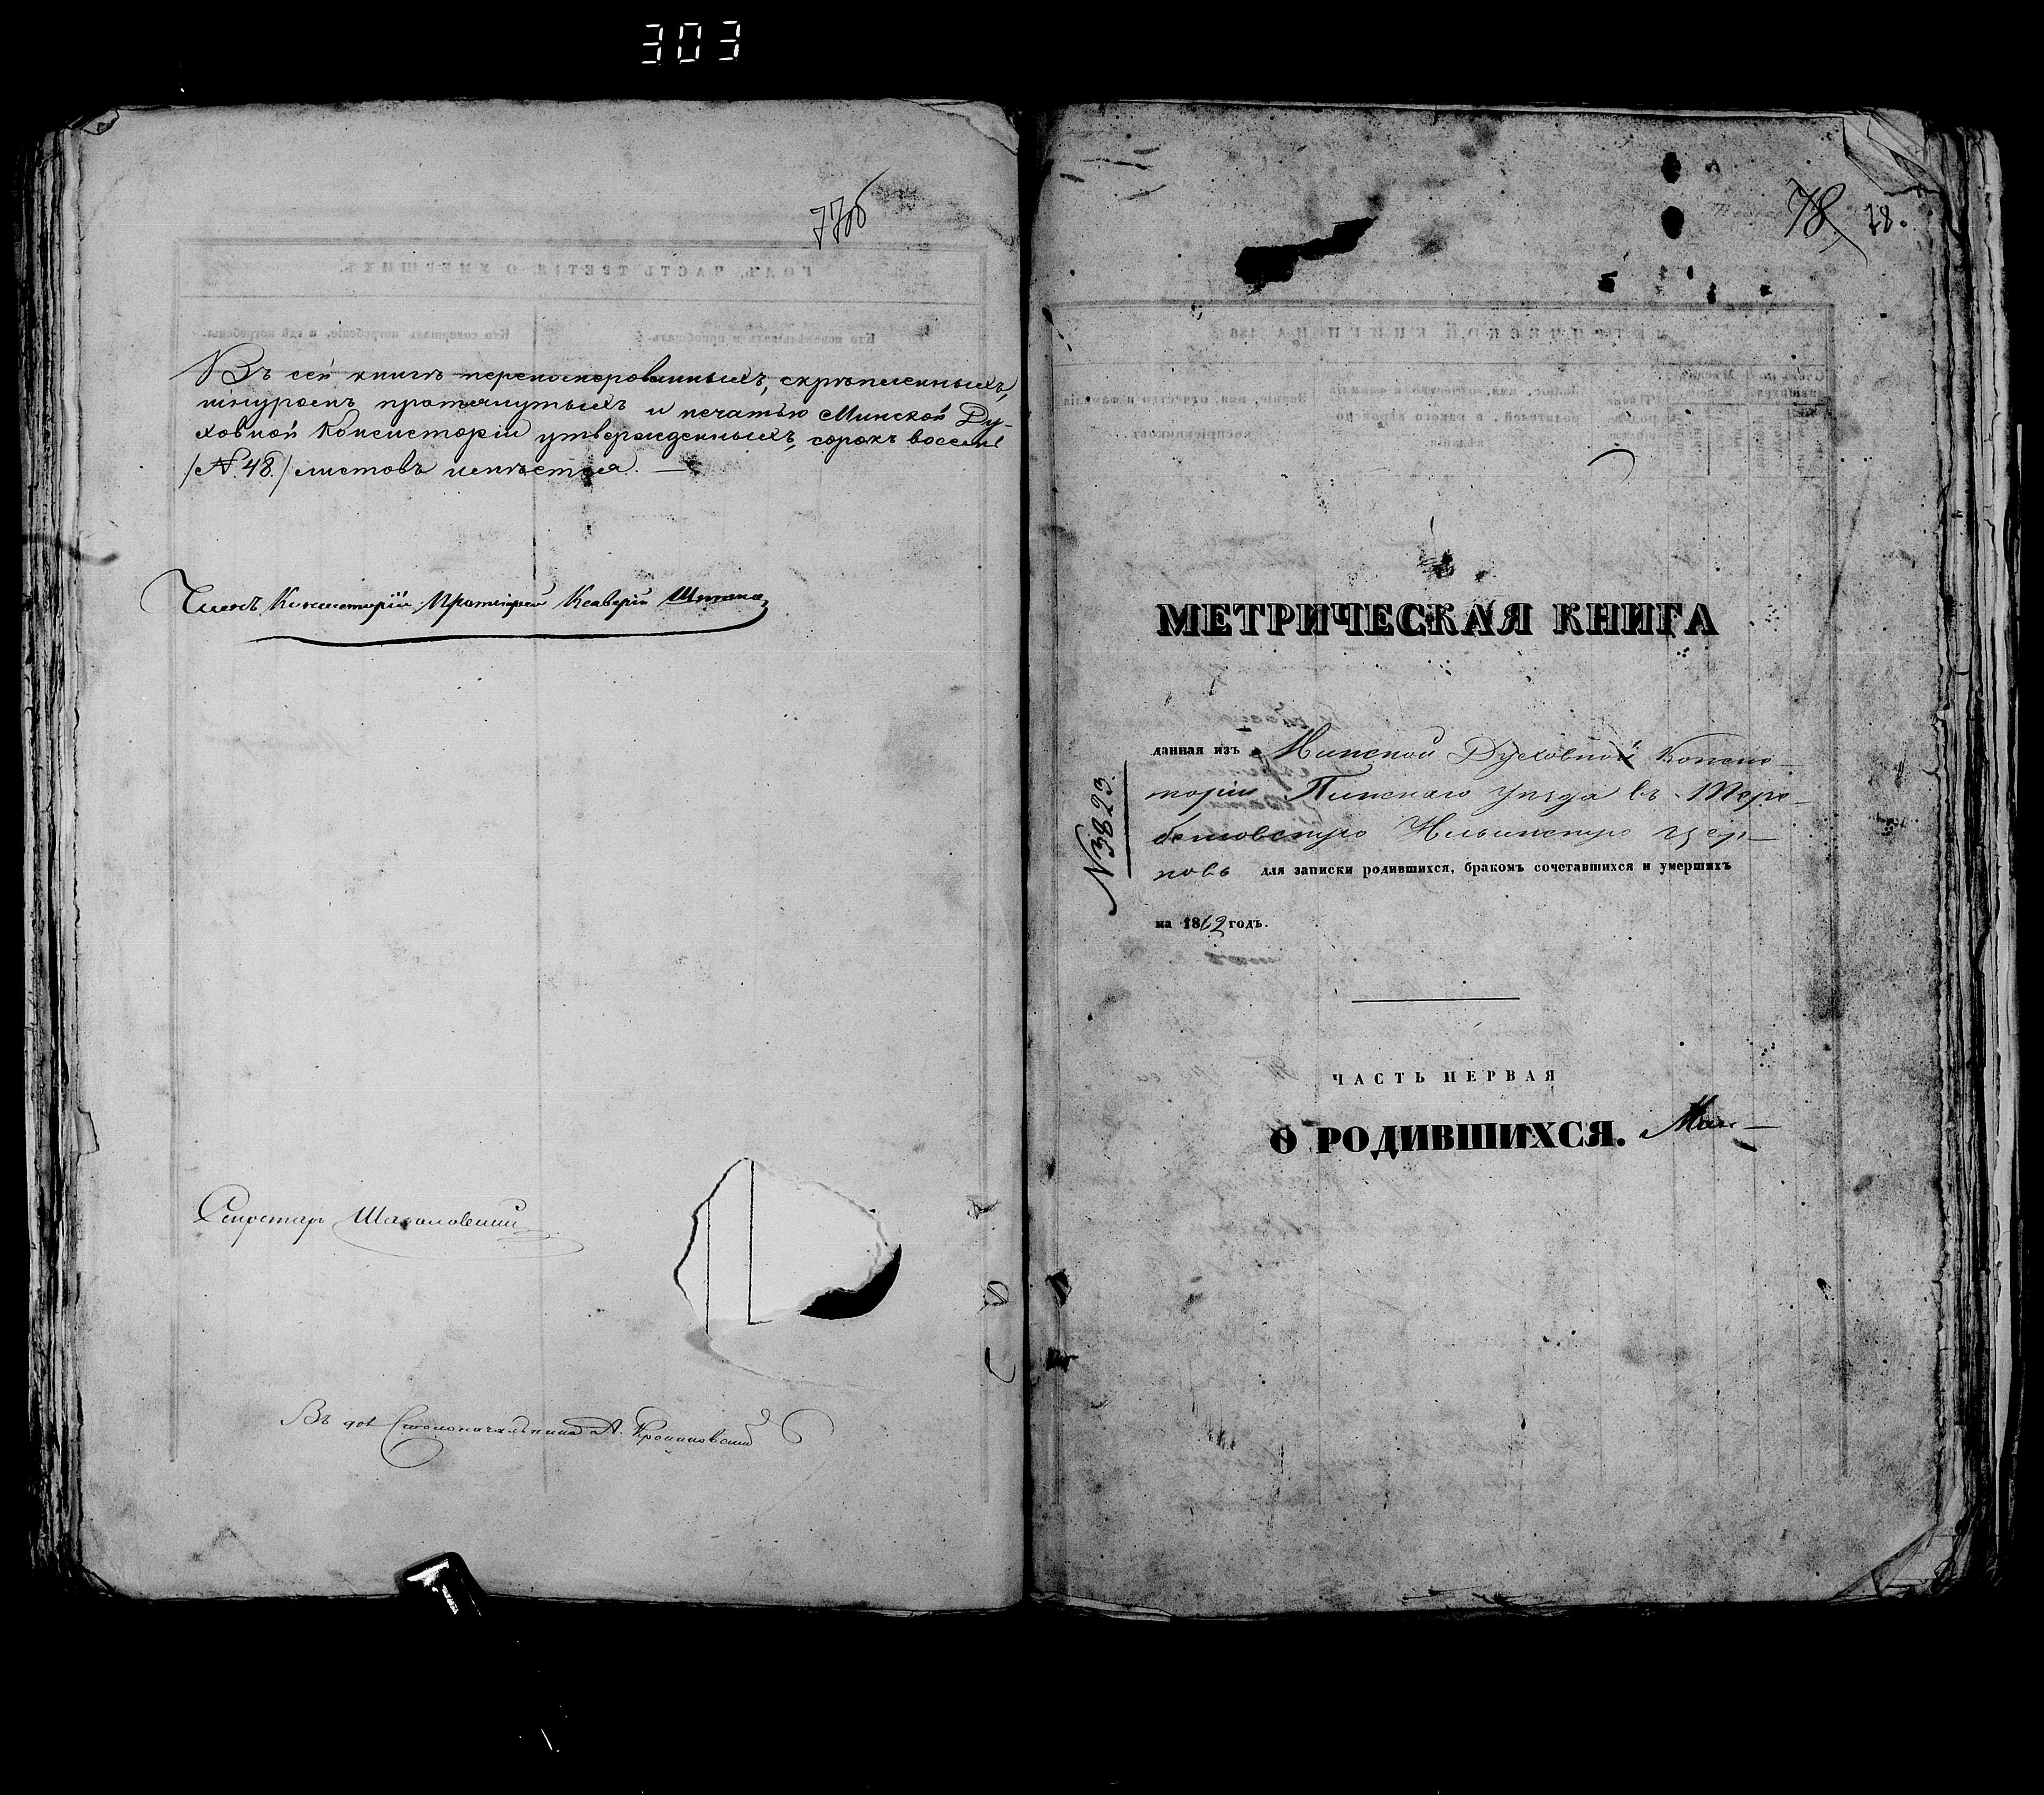 303
77об
Въ сей книгѣ перенумерованныхъ, скрѣпленныхъ,
шнуромъ протянутыхъ и печатью Минской Ду-
ховной Консисторіи утвержденныхъ, сорокъ восемь
/№ 48./ листовъ имѣется. —
Членъ Консисторіи Протоіерей Ксаверій
Секретарь
Въ дол. Столоначальника А.
78 78.
МЕТРИЧЕСКАЯ КНИГА
№3823.
данная изъ Минской Духовной Консис-
торіи Пинскаго Уѣзда въ Тере-
бежовскую Ильинскую цер-
ковь для записки родившихся, бракомъ сочетавшихся и умершихъ
на 1862 годъ.
ЧАСТЬ ПЕРВАЯ
О РОДИВШИХСЯ.